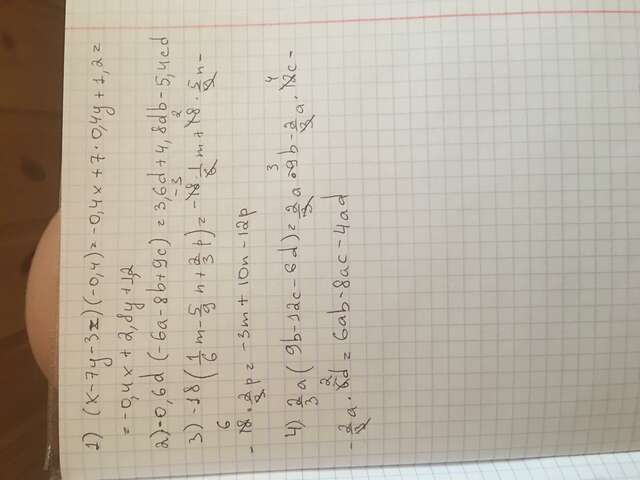 1) (x-7y-3z)(-0,4)=-0,4x+7·0,4y+1,2=
=-0,4x+2,8y+1,2
2)-0,6d(-6a-8b+9c)=3,6d+4,8db-5,4cd
3) -18(1/6m-5/9n+2/3p)=-18·1/6m+18·5/9n-
-18·2/3p=-3m+10n-12p
4) 2/3a(9b-12c-6d)=2/3a·9b-2/3a·12c-
-2/3a·6d=6ab-8ac-4ad